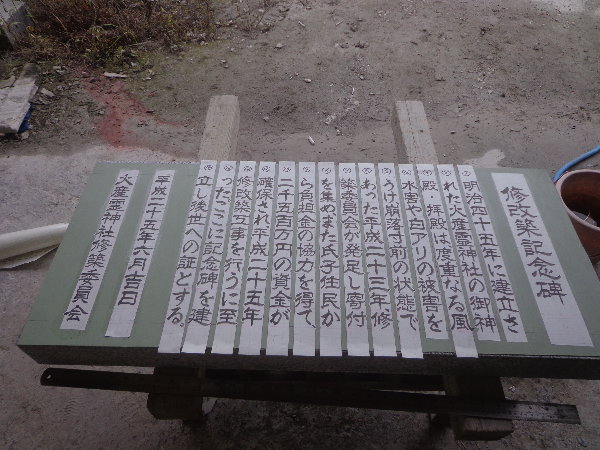 修改築記念碑
明治四十五年に建立さ
れた火産霊神社の御神
殿・拝殿は度重なる風
水害や白アリの被害を
うけ崩落寸前の状態で
あった平成二十三年修
築委員会が発足し寄付
を集めまた氏子住民か
ら負担金の協力を得て、
二千五百万円の資金が
確保され平成二十五年
修改築工事を行うに至
ったここに記念碑を建
立し後世への証とする。
平成二十五年六月吉日
火産霊神社修築委員会